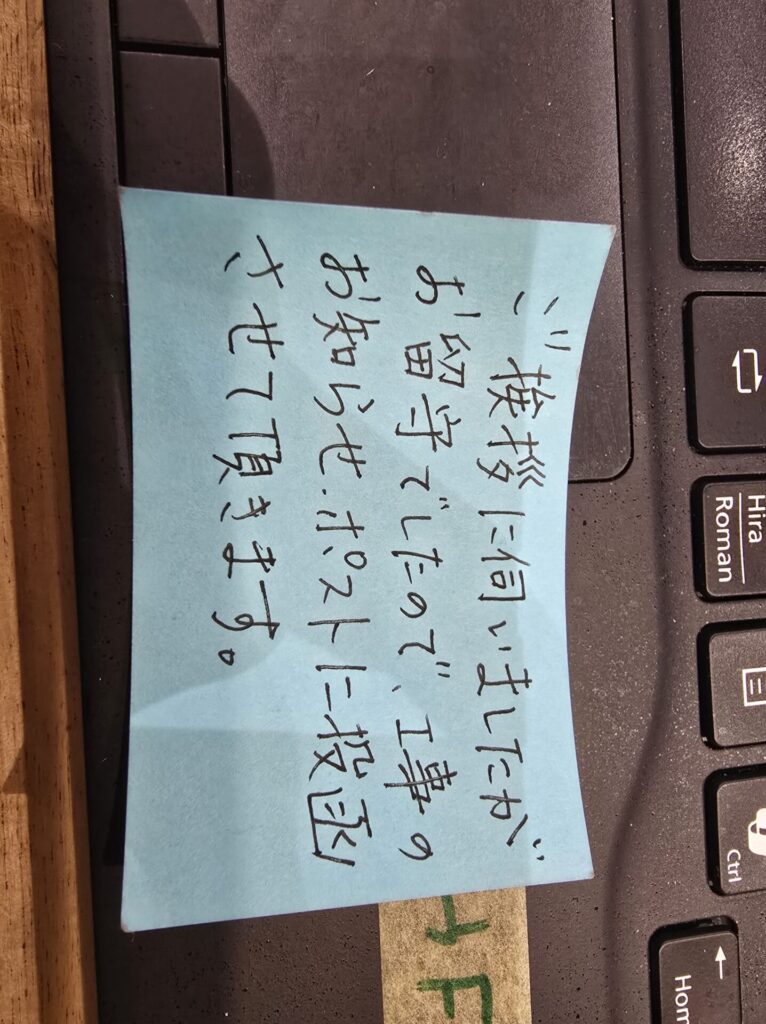 ご挨拶に伺いましたが
お留守でしたので、工事の
お知らせ、ポストに投函
させて頂きます。
Hira
Roman
Ctrl
Home